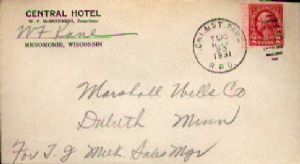 CENTRAL HOTEL
Proprietor
W F Kane
MENOMONIE, WISCONSIN
1931
R.P.O.
Marshall Wells Co
Duluth Minn
For T. J Sales Mgr